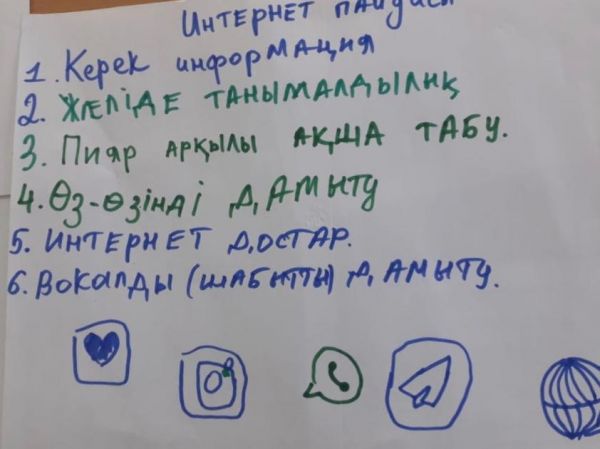 Интернет пайдасы
1. Керек информация
2. Желіде танымалдылық
3. Пияр арқылы ақша табу.
4. Өз-өзінді дамыту
5. Интернет достар.
6. Вокалды (шабытты) дамыту.